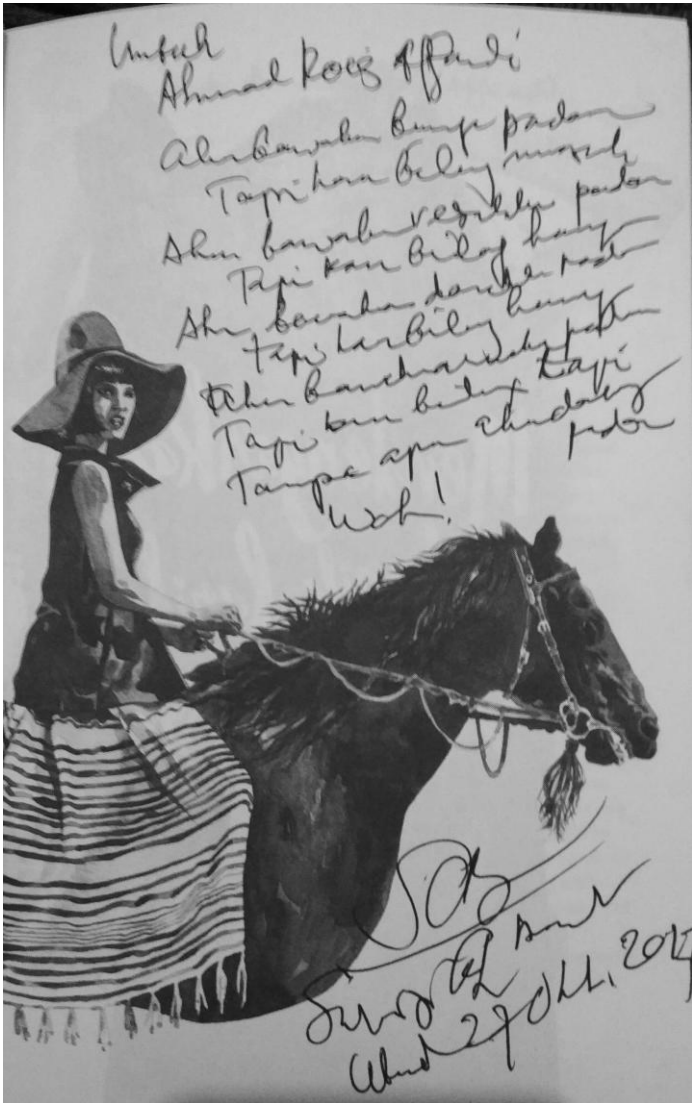 Untuk
Ahmad Roiz Affandi
Aku bawakan bunga padam
Tapi kau bilang masih
Aku bawakan resahku padam
Tapi kau bilang hanya
Aku bawakan darahku padam
Tapi kau bilang hanya
Aku bawakan mimpiku padam
Tapi kau bilang tapi
Tanpa apa aku datang
padam
Wah!
27 Okt. 2017